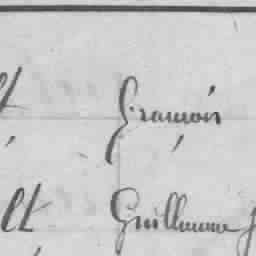 lt François
lt Guillaume